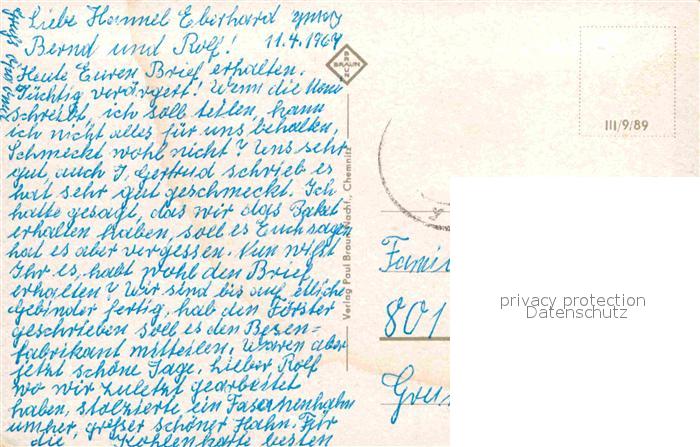 Liebe Hannel Eberhard
Bernd und Rolf! 11.4.1969
Heute Euren Brief erhalten.
Tüchtig verärgert! Wenn die Uni
schreibt, ich soll teilen, kann
ich nicht alles für uns behalten,
Schmeckt wohl nicht? Uns sehr
gut auch J. Gertrud schrieb es
hat sehr gut geschmeckt. Ich
hatte gesagt, das wir das Paket
erhalten haben, soll es Euch sagen
hat es aber vergessen. Nun wißt
Ihr es, habt wohl den Brief
erhalten? Wir sind bis auf etliche
Gebinder fertig, hab den Förster
geschrieben soll es den Besen=
fabrikant mitteilen. Waren aber
jetzt schöne Tage. Lieber Rolf
wo wir zuletzt gearbeitet
haben, stolzierte ein Fasanenhahn
umher, großer schöner Hahn. Für
die Kohlenkarte besten
BRAUN
III/9/89
Verlag Paul Braun Nachf., Chemnitz
Famil
801
privacy protection
Datenschutz